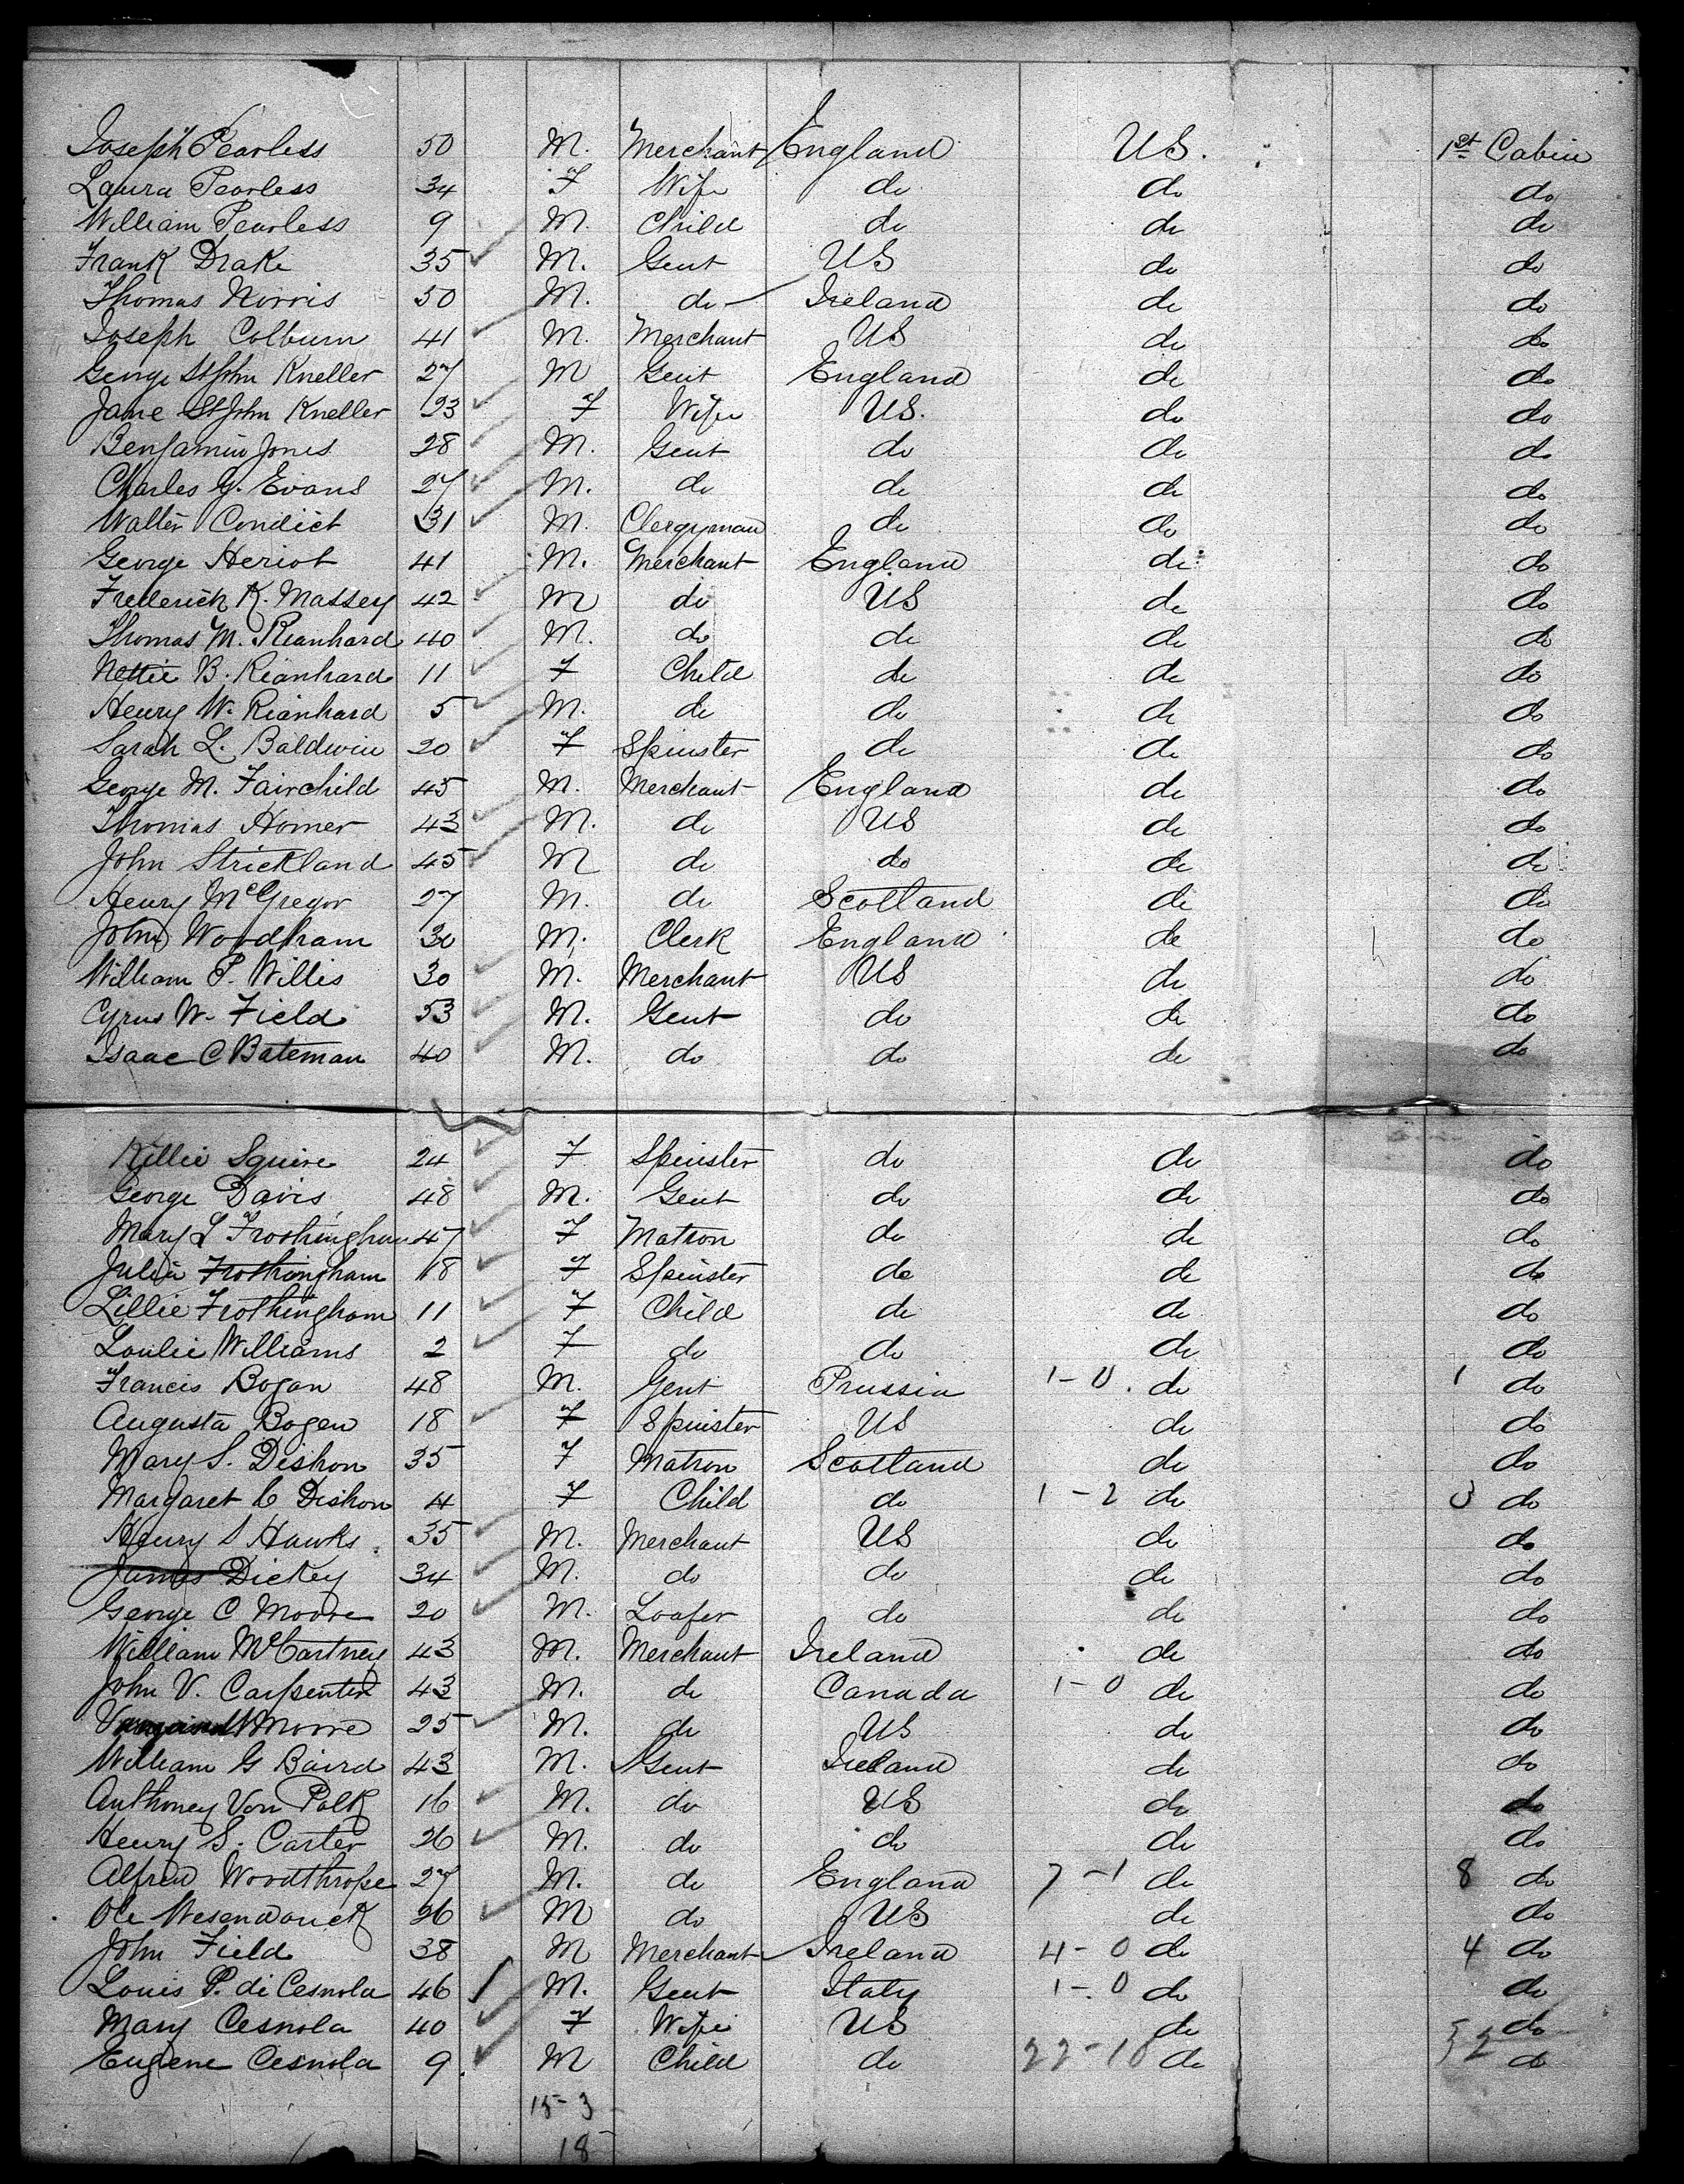 Joseph Pearless 50 M. Merchant England US. 1st Cabin
Laura Pearless 34 F Wife do do do
William Pearless 9 M. Child do do do
Frank Drake 35 M. Gent US do do
Thomas Norris 50 M. do Ireland do do
Joseph Colburn 41 M. Merchant US do do
George St John Kneller 27 M Gent England do do
Jane St John Kneller 23 F Wife US. do do
Benjamin Jones 28 M. Gent do do do
Charles G. Evans 27 M. do do do do
Walter Condict 31 M. Clergyman do do do
George Heriot 41 M. Merchant England do do
Frederick K. Massey 42 M do US do do
Thomas M. Rianhard 40 M. do do do do
Nettie B. Rianhard 11 F Child do do do
Henry W. Rianhard 5 M. do do do do
Sarah L. Baldwin 20 F Spinster do do do
George M. Fairchild 45 M. Merchant England do do
Thomas Homer 43 M. do US do do
John Strickland 45 M do do do do
Henry McGregor 27 M. do Scotland do do
John Woodham 30 M. Clerk England do do
William P. Willis 30 M. Merchant US do do
Cyrus W. Field 53 M. Gent do do do
Isaac C Bateman 40 M. do do do do
Killie Squire 24 F Spinster do do do
George Davis 48 M. Gent do do do
Mary L Frothingham 47 F Matron do do do
Julia Frothingham 18 F Spinster do do do
Lillie Frothingham 11 F Child do do do
Loulie Williams 2 F do do do do
Francis Bogan 48 M. Gent Prussia 1-0. do 1 do
Augusta Bogen 18 F Spinster US do do
Mary S. Dishon 35 F Matron Scotland do do
Margaret C Dishon 4 F Child do 1-2 do 3 do
Henry S Hawks 35 M. Merchant US do do
James Dickey 34 M. do do do do
George C Moore 20 M. Loafer do do do
William McCartney 43 M. Merchant Ireland do do
John V. Carpenter 43 M. do Canada 1-0 do do
Moore 25 M. do US do do
William G Baird 43 M. Gent Ireland do do
Anthoney Von Polk 16 M. do US do do
Henry S. Carter 26 M. do do do do
Alfred Woodthrope 27 M. do England 7-1 do 8 do
Ole Wesendonck 26 M do US do do
John Field 38 M Merchant Ireland 4-0 do 4 do
Louis P. di Cesnola 46 M. Gent Italy 1-0 do do
Mary Cesnola 40 F Wife US do do
Eugene Cesnola 9. M Child do 22-10 do 32 do
15-3
18